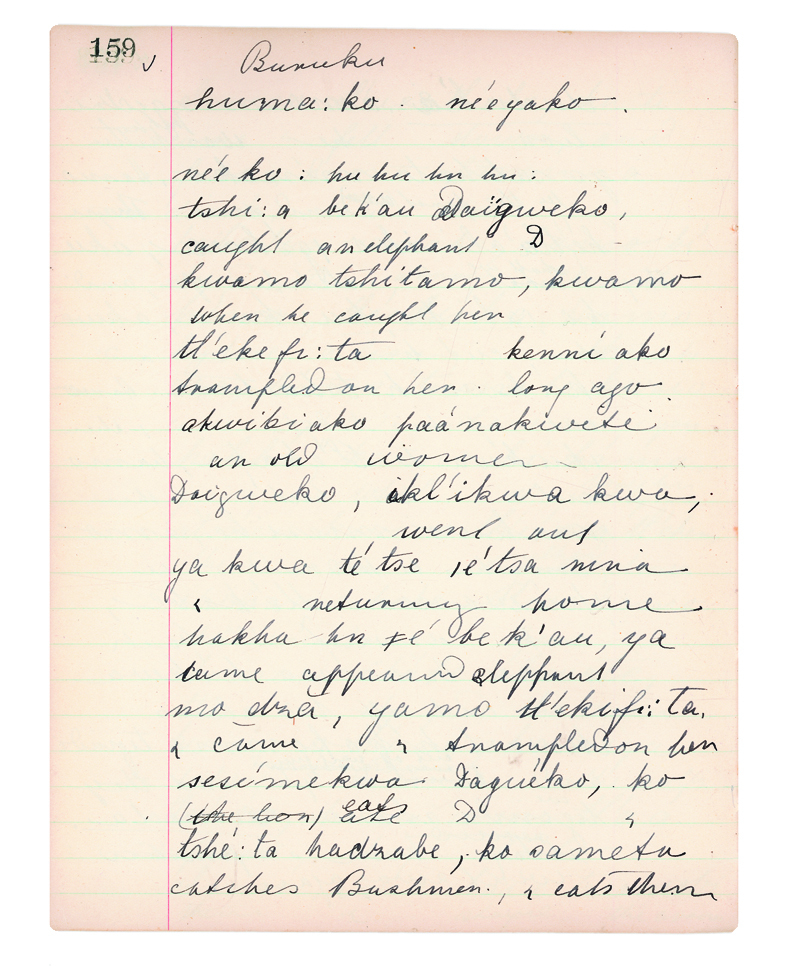 159
Buruku
huma:ko. née yako.
née ko: hu hu hu hu:
tshi:a bek'au Daigweko,
caught an elephant D
kwamo tshitamo, kwamo
when he caught her
tl'eke fi:ta kenni ako
trampled on her. long ago.
akwibiako paánakwete
an old women
Daigweko, ikl'ikwa kwa,
went out
ya kwa té tse ié'tsa mna
& returning home
hakha hu é bek'au, ya
came appeared elephant
mo dza, yamo tl'ekifi:ta.
& came & trampled on her
sesimekwa Daguéko, ko
(the hon) eats D &
tshé:ta hadzabe, ko sameta
catches Bushmen, & eats them